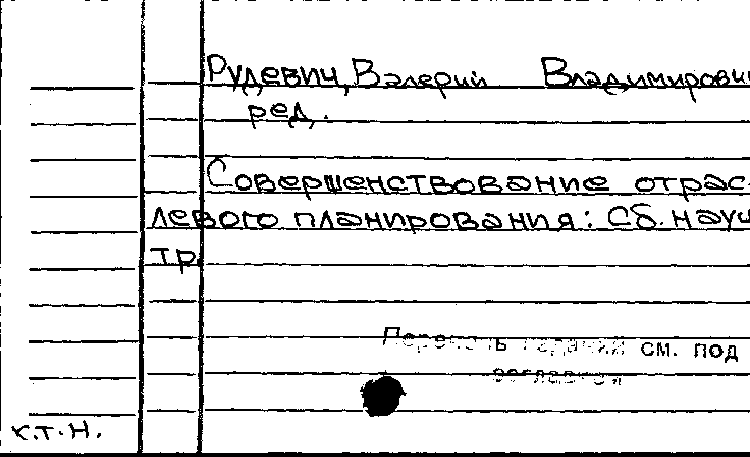 Рудевич, Валерий Владимирович
ред.
Совершенствование отрас-
левого планирования: Сб. науч
тр.
Перечень изданий см. под
заглавием
к.т.н.